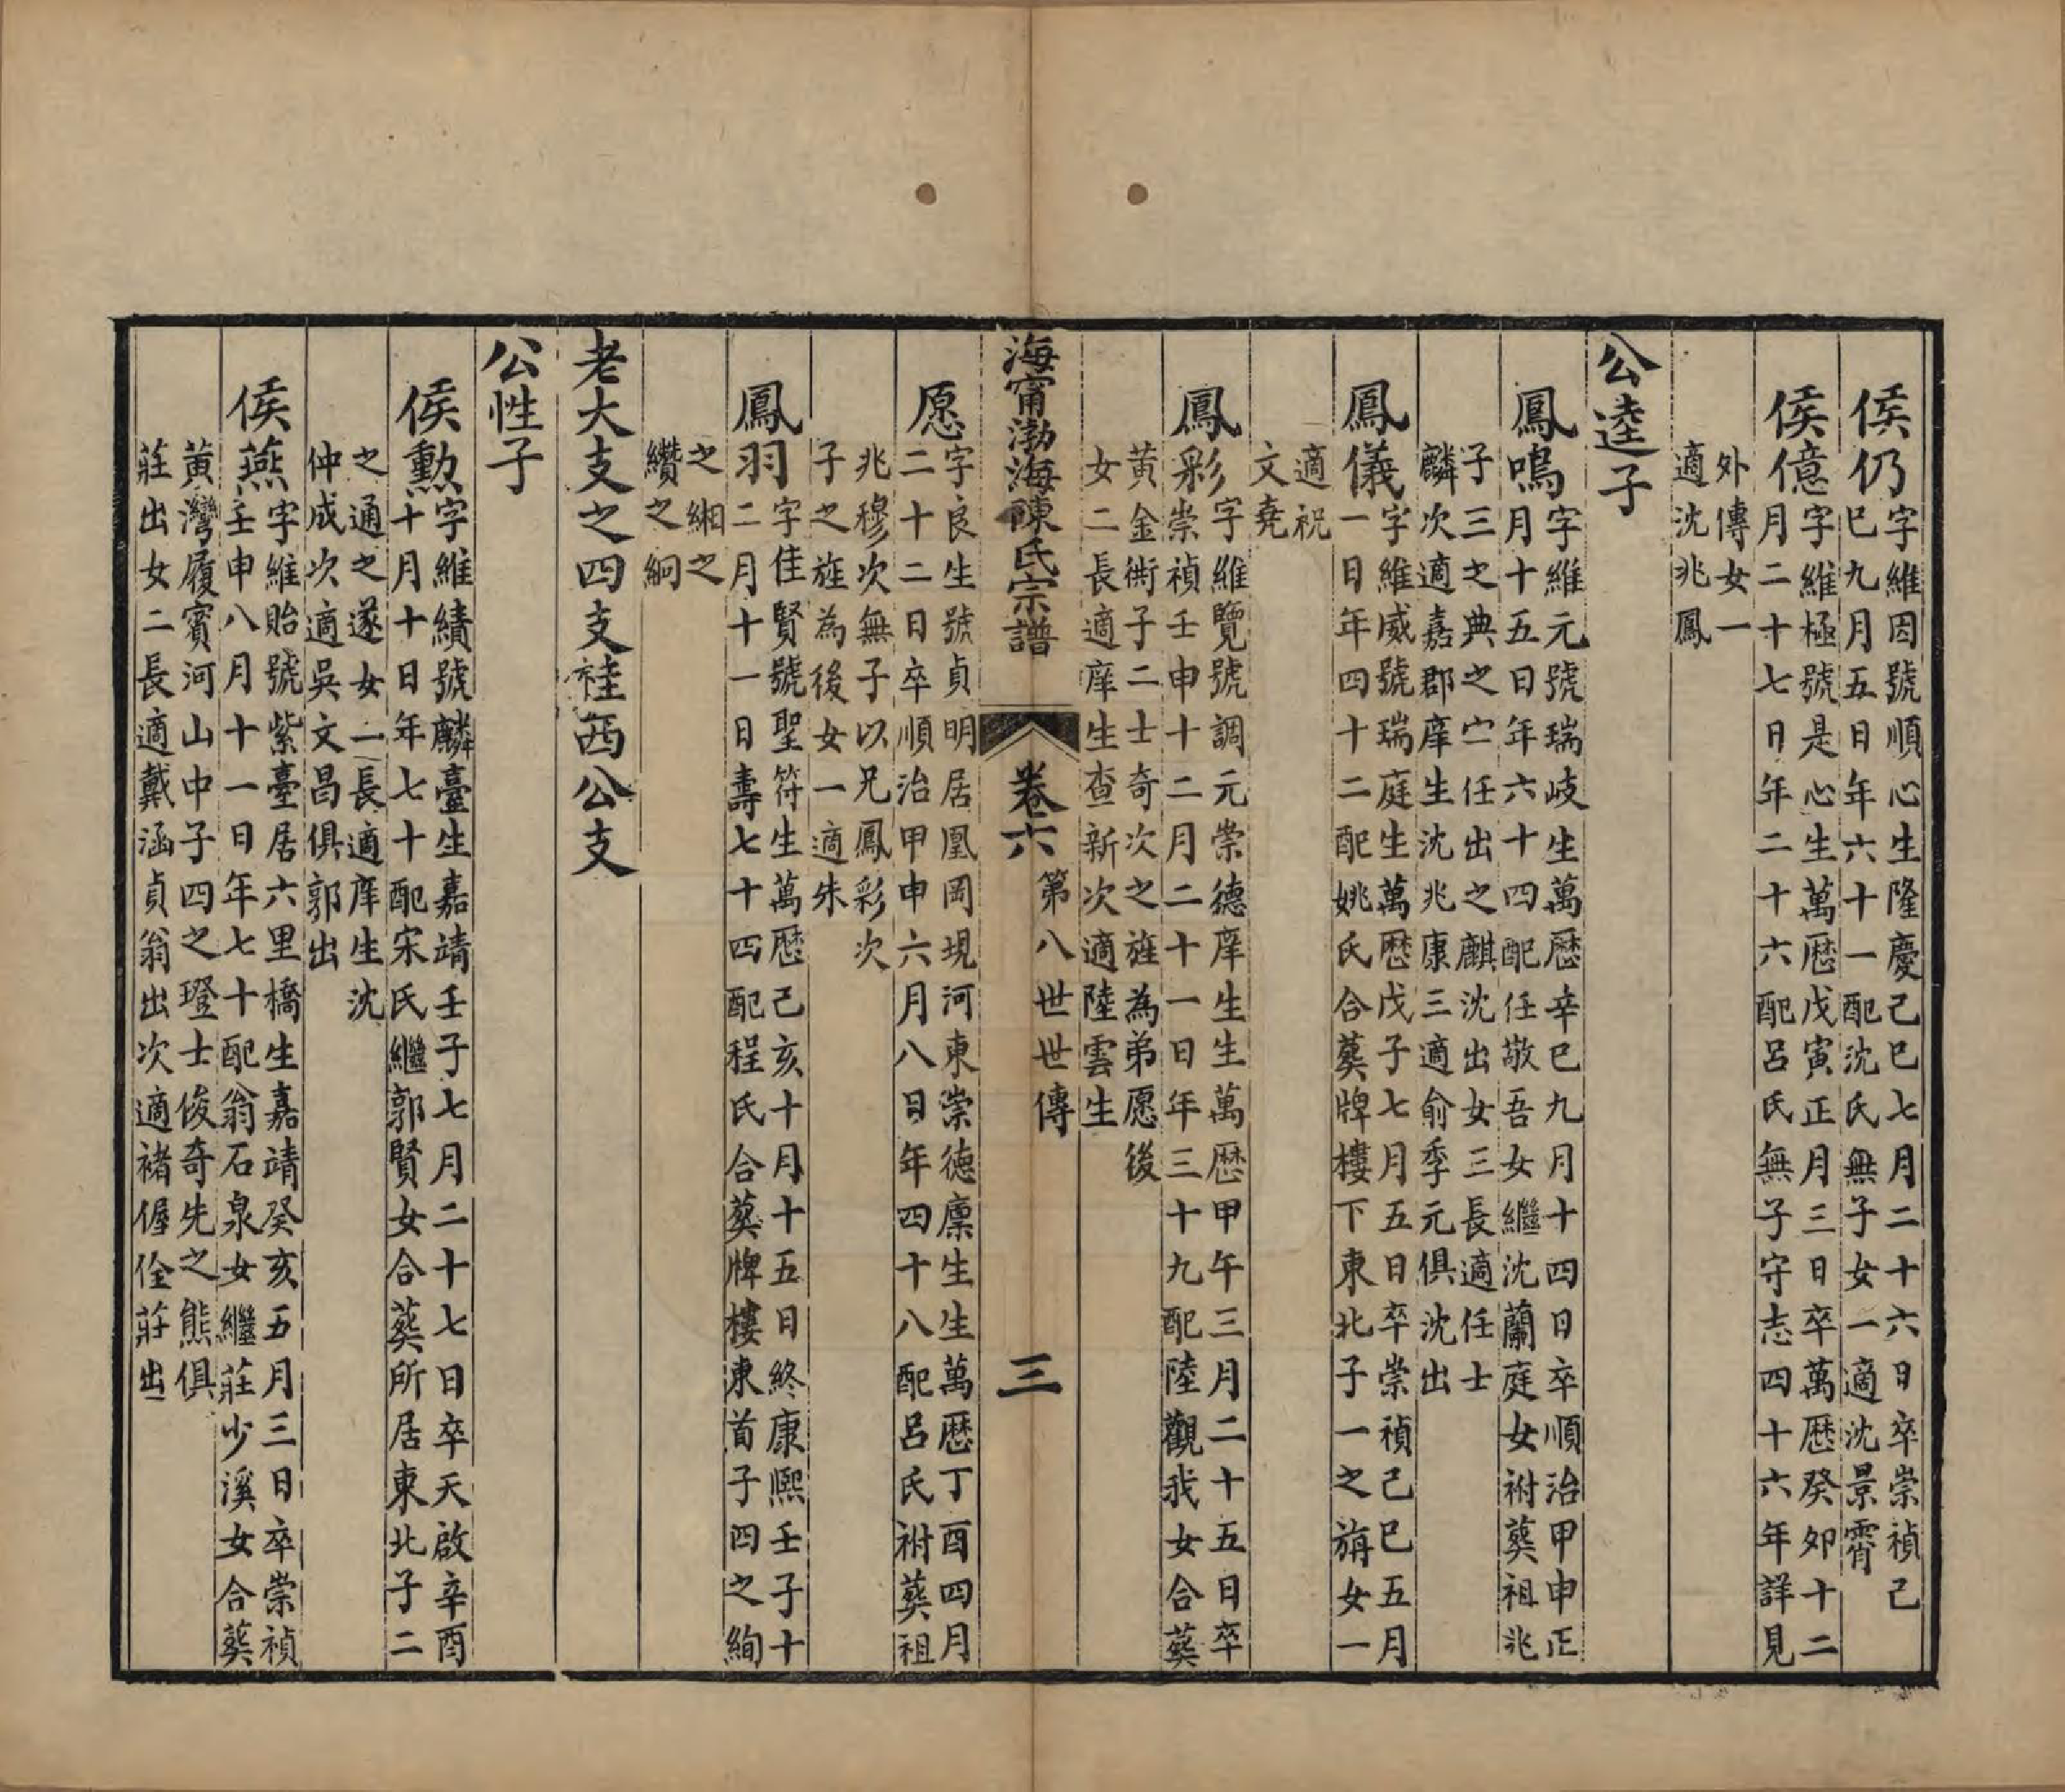 侯仍字維因號順心生隆慶己巳七月二十六日卒崇禎己
巳九月五日年六十一配沈氏無子女一適沈景霄
侯億字維極號是心生萬歷戊寅正月三日卒萬歷癸卯十二
月二十七日年二十六配呂氏無子守志四十六年詳見
外傳女一
適沈兆鳳
公逵子
鳳鳴字維元號瑞岐生萬歷辛巳九月十四日卒順治甲申正
月十五日年六十四配任敬吾女繼沈蘭庭女祔葬祖兆
子三之典之宀任出之麒沈出女三長適任士
麟次適嘉郡庠生沈兆康三適俞季元俱沈出
鳳儀字維威號瑞庭生萬歷戊子七月五日卒崇禎己巳五月
一日年四十二配姚氏合葬牌樓下東北子一之旃女一
適祝
文堯
鳳彩字維覽號調元崇德庠生生萬歷甲午三月二十五日卒
崇禎壬申十二月二十一日年三十九配陸觀我女合葬
黄金衖子二士奇次之旌為弟愿後
女二長適庠生查新次適陸雲生
海甯渤海陳氏宗譜 卷六 第八世世傳 三
愿字良生號貞明居凰岡現河東崇德廪生生萬歷丁酉四月
二十二日卒順治甲申六月八日年四十八配呂氏祔葬祖
兆穆次無子以兄鳳彩次
子之旌為後女一適朱
鳳羽字佳賢號聖符生萬歷己亥十月十五日終康熙壬子十
二月十一日壽七十四配程氏合葬牌樓東首子四之絢
之緗之
纘之絅
老大支之四支袿西公支
公性子
侯勲字維績號麟臺生嘉靖壬子七月二十七日卒天啟辛酉
十月十日年七十配宋氏繼郭賢女合葬所居東北子二
之通之遂女二長適庠生沈
仲成次適吳文昌俱郭出
侯燕字維貽號紫臺居六里橋生嘉靖癸亥五月三日卒崇禎
壬申八月十一日年七十配翁石泉女繼莊少溪女合葬
黄灣履賓河山中子四之璒士俊奇先之熊俱
莊出女二長適戴涵貞翁出次適褚偓佺莊出